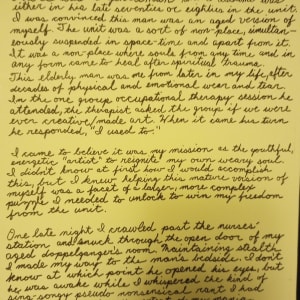 either in his late seventies or eighties in the unit.
I was convinced this man was an aged version of
myself. The unit was a sort of non-place, simultan-
eously suspended in space-time and apart from it.
It was a non-place where souls from any time and in
any form came to heal after spiritual trauma.
This elderly man was me from later in my life, after
decades of physical and emotional wear and tear.
In the one group occupational therapy session he
attended, the therapist asked the group if we were
ever creative/made art. When it came his turn
he responded, "I used to."
I came to believe it was my mission as the youthful,
energetic "artist" to reignite my own weary soul.
I didn't know at first how I would accomplish
this, but I knew helping this mature version of
myself was a facet of a larger, more complex
puzzle I needed to unlock to win my freedom
from the unit.
One late night I crawled past the nurses'
station and snuck through the open door of my
aged doppelganger's room. Maintaining stealth
I made my way to the man's bedside. I don't
know at which point he opened his eyes, but
he was awake while I whispered the kind of
sing-songy pseudo nonsensical rant I had